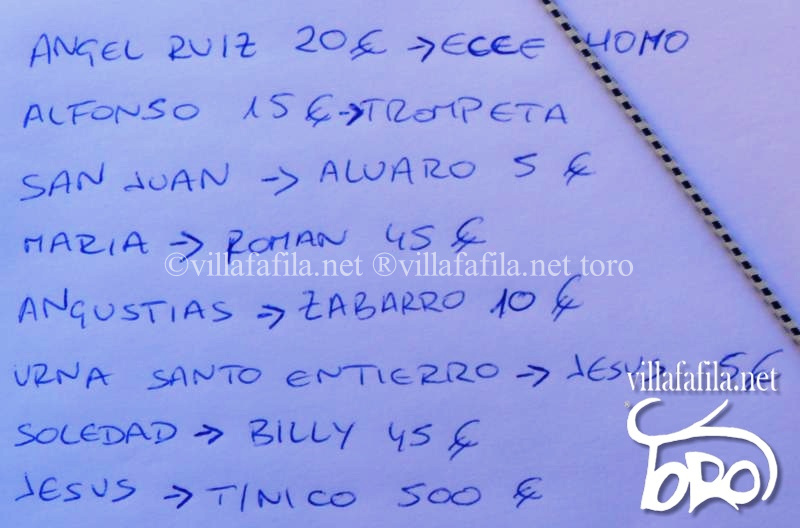 ANGEL RUIZ 20 € → ECCE HOMO
ALFONSO 15 € → TROMPETA
SAN JUAN → ALVARO 5 €
MARIA → ROMAN 45 €
©villafafila.net ®villafafila.net toro
ANGUSTIAS → ZABARRO 10 €
URNA SANTO ENTIERRO → JESUS 5 €
villafafila.net
SOLEDAD → BILLY 45 €
TORO
JESUS → T/NICO 500 €